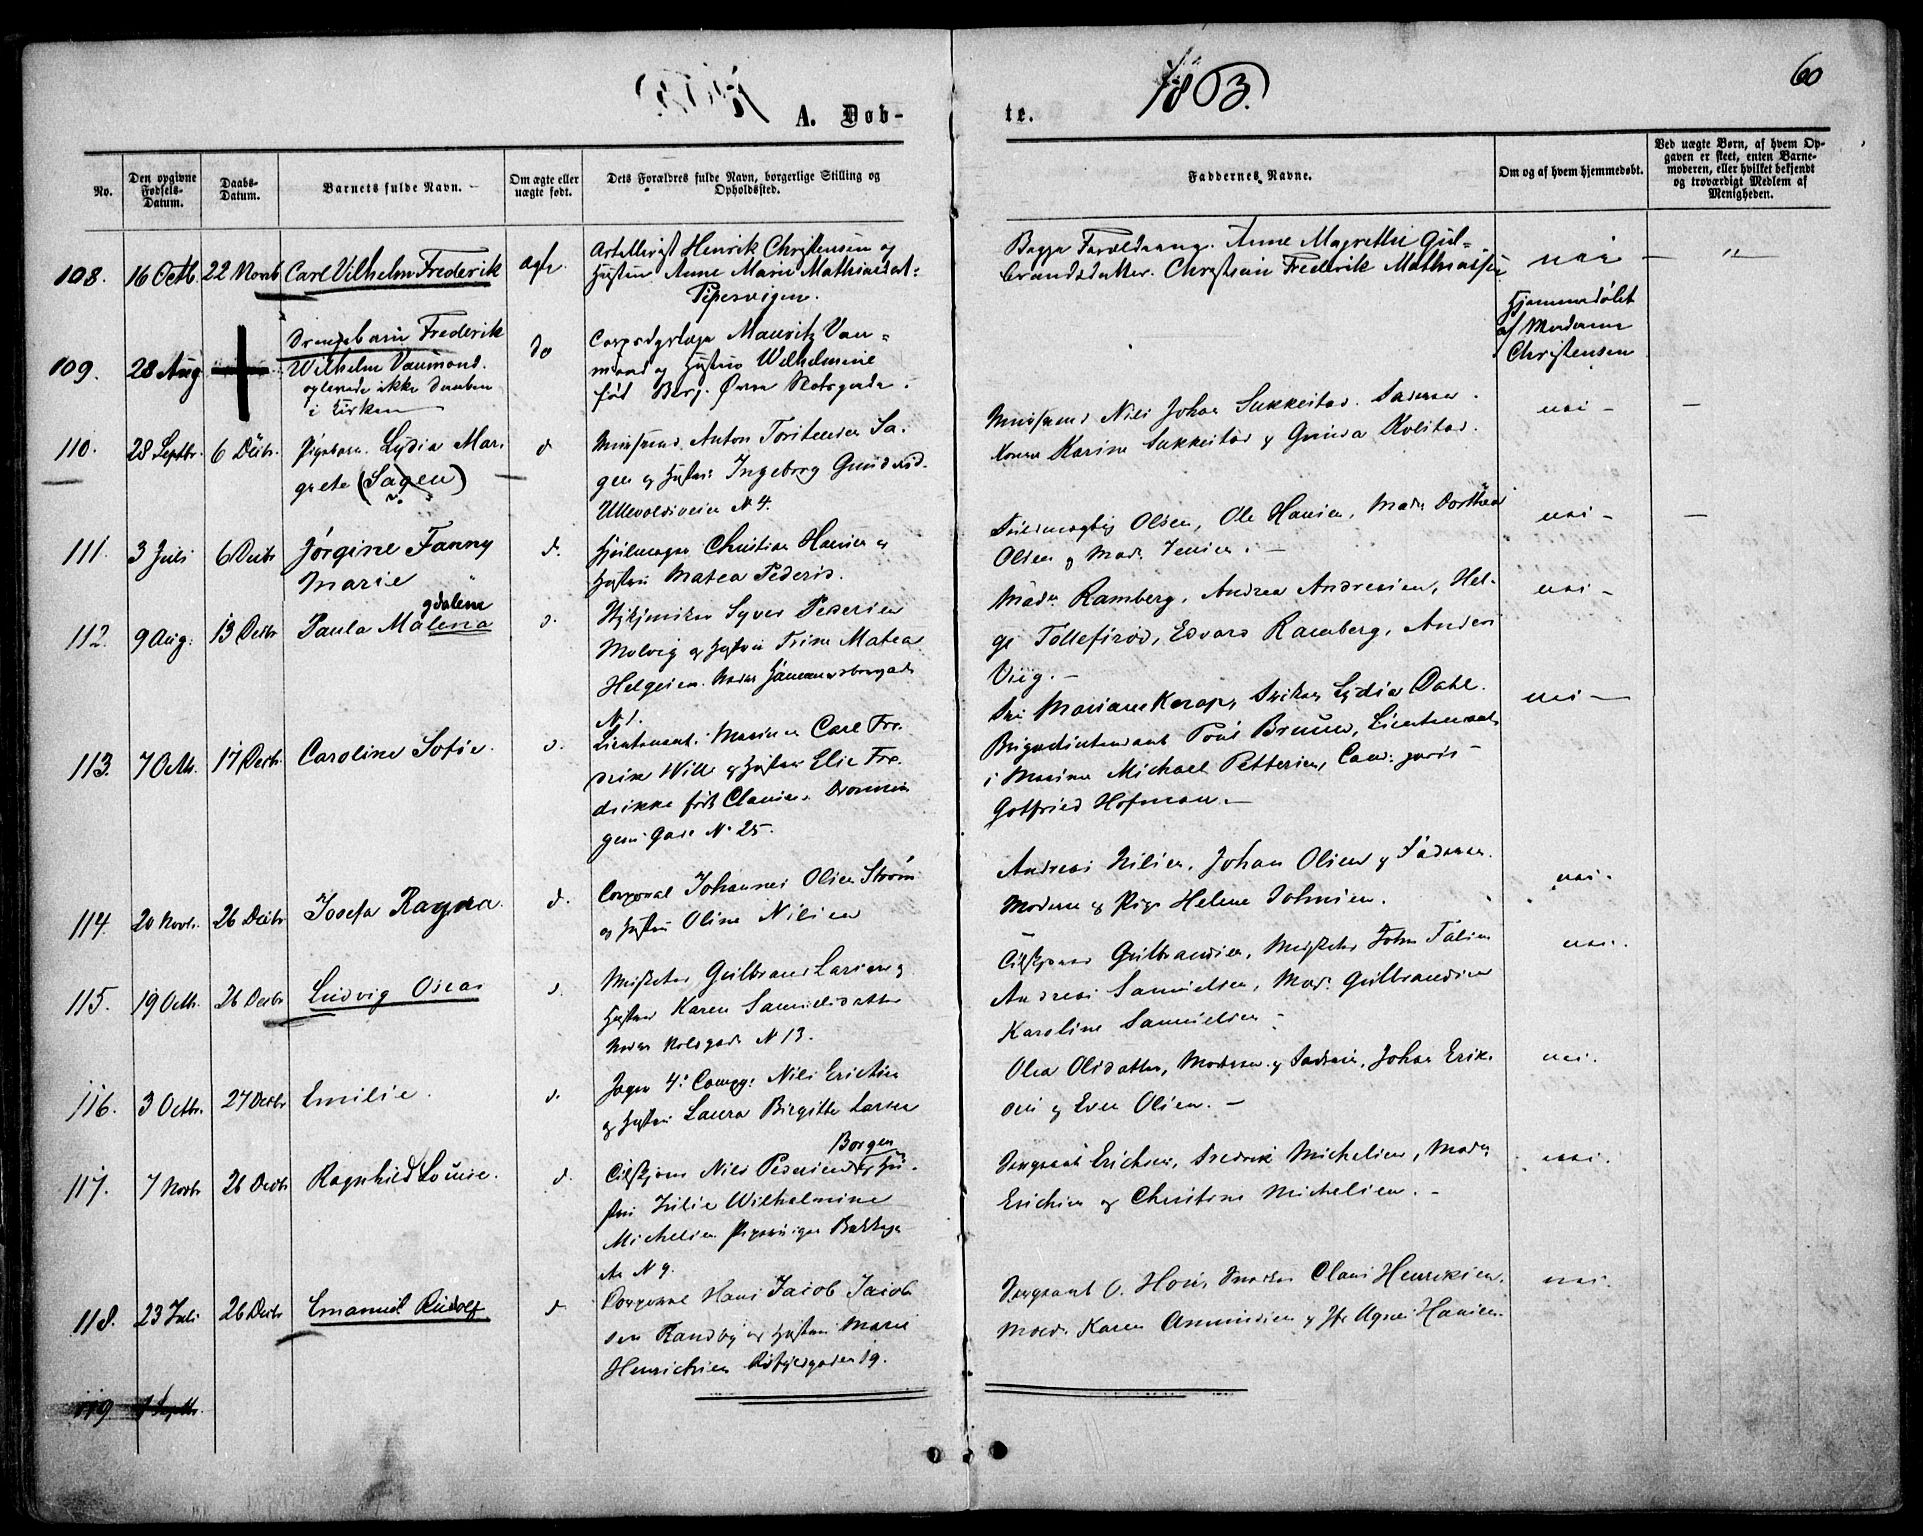 1863.
60
A. Døb-
te.
No.
Den opgivne Fødsels-Datum.
Daabs-Datum.
Barnets fulde Navn.
Om ægte eller uægte født.
Dets Forældres fulde Navn, borgerlige Stilling og Opholdssted.
Faddernes Navne.
Om og af hvem hjemmedøbt.
Ved uægte Børn, af hvem Opgaven er skeet, enten Barnemoderen, eller hvilket bekjendt og troværdigt Medlem af Menigheden.
108. 16 Octb. 22 Novb Carl Vilhelm Frederik ægte.
Artillerist Henrik Christensen og
Hustru Anne Marie Mathiasdat-
Pipervigen.
Begge Forældrene. Anne Magrethe Gul-
brandsdatter. Christian Frederik Mathiassen
nei — "
109. 28 Aug
Drengebarn Frederik
Wilhelm Vaumond.
oplevede ikke Daaben
i Kirken
do
Mauritz Vau-
mond og Hustru Wilhelmine
fød Berg. Øvre Slotsgade.
Hjemmedøbt
af Moderen
Christensen
110. 28 Septbr. 6 Decbr. Pigebarn. Lydia Mar-
grete (Sagen)
d
Anton Torstensen Sa-
gen og Hustru Ingeborg Gundersd.
Ullevoldsveien N 4.
Nils Johan Sukkestad. Faderen.
Konen Karine Sukkestad og Gunda Kolstad.
nei — —
111. 3 Juli 6 Decbr Jørgine Fanny
Marie
d.
Hjulmager Christian Hansen og
Hustru Matea Pedersd.
Fuldmægtig Olsen, Ole Hansen, Mad. Dorthea
Olsen og Mad. Jensen. —
nei — —
112. 9 Aug. 13 Decbr Paula Malena
gdalene
d.
Syver Pedersen
Molvig og Hustru Trine Matea
Helgesen.
N 1.
Madm. Ramberg, Andrea Andresen, Hel-
ge Tollefsrød, Edvard Ramberg, Anders
Viig. —
nei —
113. 7 Octb. 17 Decbr. Caroline Sofie.
d.
Lieutenant i Marinen Carl Fre-
derik Wille og Hustru Elise Fre-
drikke født Clausen. Dronnin-
gens Gade N. 25.
Lydia Dahl.
Poul Bruun, Lieutenant
i Marinen Michael Pettersen, Cand. juris
Gotfried Hofman. —
nei —
114. 20 Novbr. 26 Decbr Josefa Ragna.
d.
Corporal Johannes Olsen Strøm
og Hustru Oline Nilsen
Andreas Nilsen, Johan Olsen og Faderen.
Moderen og Pige Helene Johnsen.
nei.
115. 19 Octb. 26 Decbr Ludvig Oscar
d.
Gulbrand Larsen og
Hustru Karen Samuelsdatter
N 13.
Gulbrandsen, John
Andreas Samuelsen, Mad. Gulbrandsen
Karoline Samuelsen —
nei.
116. 3 Octbr. 27 Decbr Emilie.
d.
Jæger 4. Comp: Nils Ericksen
og Hustru Laura Birgitte Larsen
Olea Olsdatter, Moderen og Faderen, Johan Erik-
sen og Even Olsen. —
nei.
117. 7 Novbr 26 Decbr Ragnhild Louise.
d.
Nils Pedersen Borgen og Hu-
stru Julie Wilhelmine
Michelsen Pipervigen Bakkega-
de N 9.
Sergeant Erichsen, Fredrik Michelsen, Mad.
Erichsen og Christine Michelsen. —
nei.
118. 23 Juli 26 Decbr Emanuel Rudolf
d.
Corporal Hans Jacob Jacob-
sen Randby og Hustru Marie
Henrichsen 19.
Sergeant O. Claus Henriksen.
Mad. Karen Amundsen og Jfr Agnes Hansen.
nei.
119 1 Septbr.